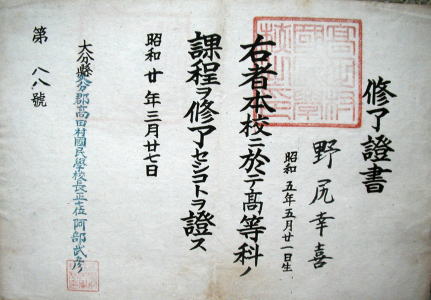 修了證書
野尻幸喜
昭和五年五月廿一日生
右者本校ニ於テ高等科ノ
課程ヲ修了セシコトヲ證ス
昭和廿年三月廿七日
大分縣大分郡高田村國民學校長正七位阿部武彦
第八八號